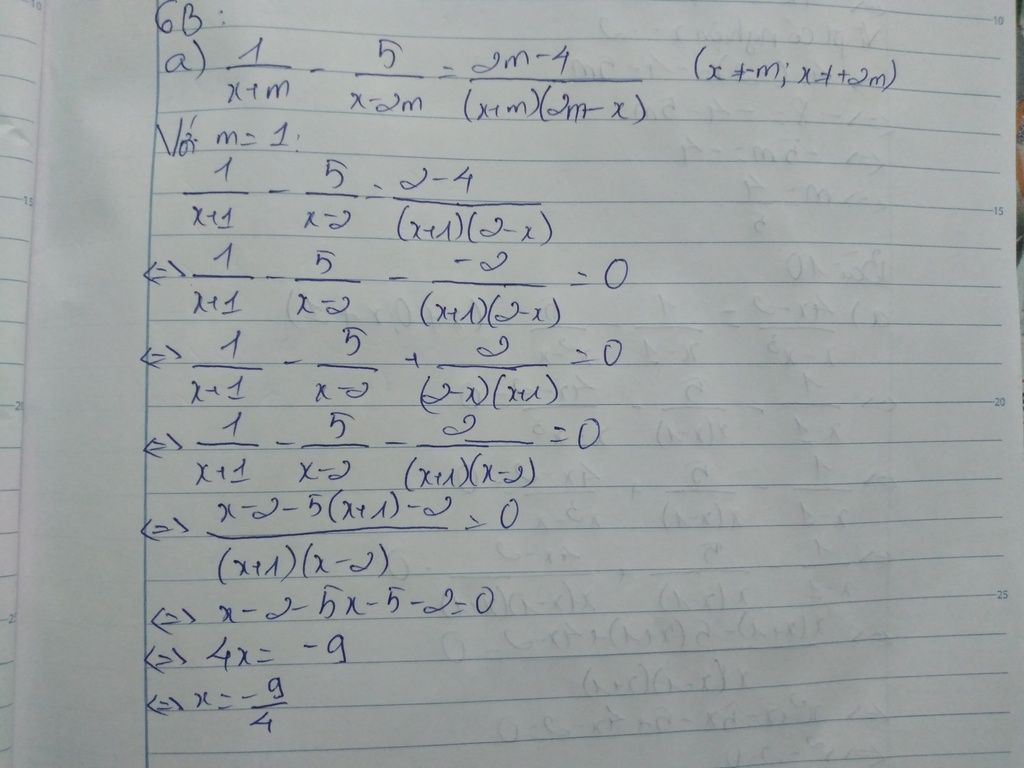 6B:
a) 1/(x+m) - 5/(x-2m) = (2m-4)/((x+m)(2m-x)) (x≠-m; x≠+2m)
Với m=1:
1/(x+1) - 5/(x-2) = (2-4)/((x+1)(2-x))
<=> 1/(x+1) - 5/(x-2) - (-2)/((x+1)(2-x)) = 0
<=> 1/(x+1) - 5/(x-2) + 2/((2-x)(x+1)) = 0
<=> 1/(x+1) - 5/(x-2) - 2/((x+1)(x-2)) = 0
<=> (x-2-5(x+1)-2)/((x+1)(x-2)) = 0
<=> x-2-5x-5-2=0
<=> 4x= -9
<=> x= -9/4